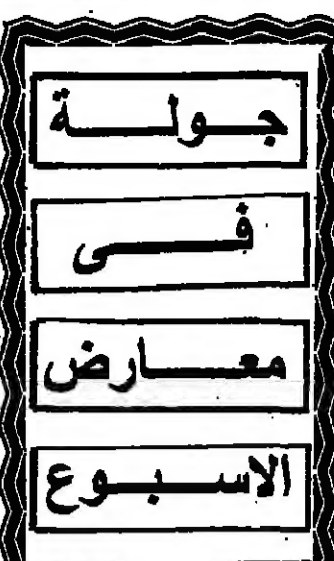 جولة
فى
معارض
الاسبوع